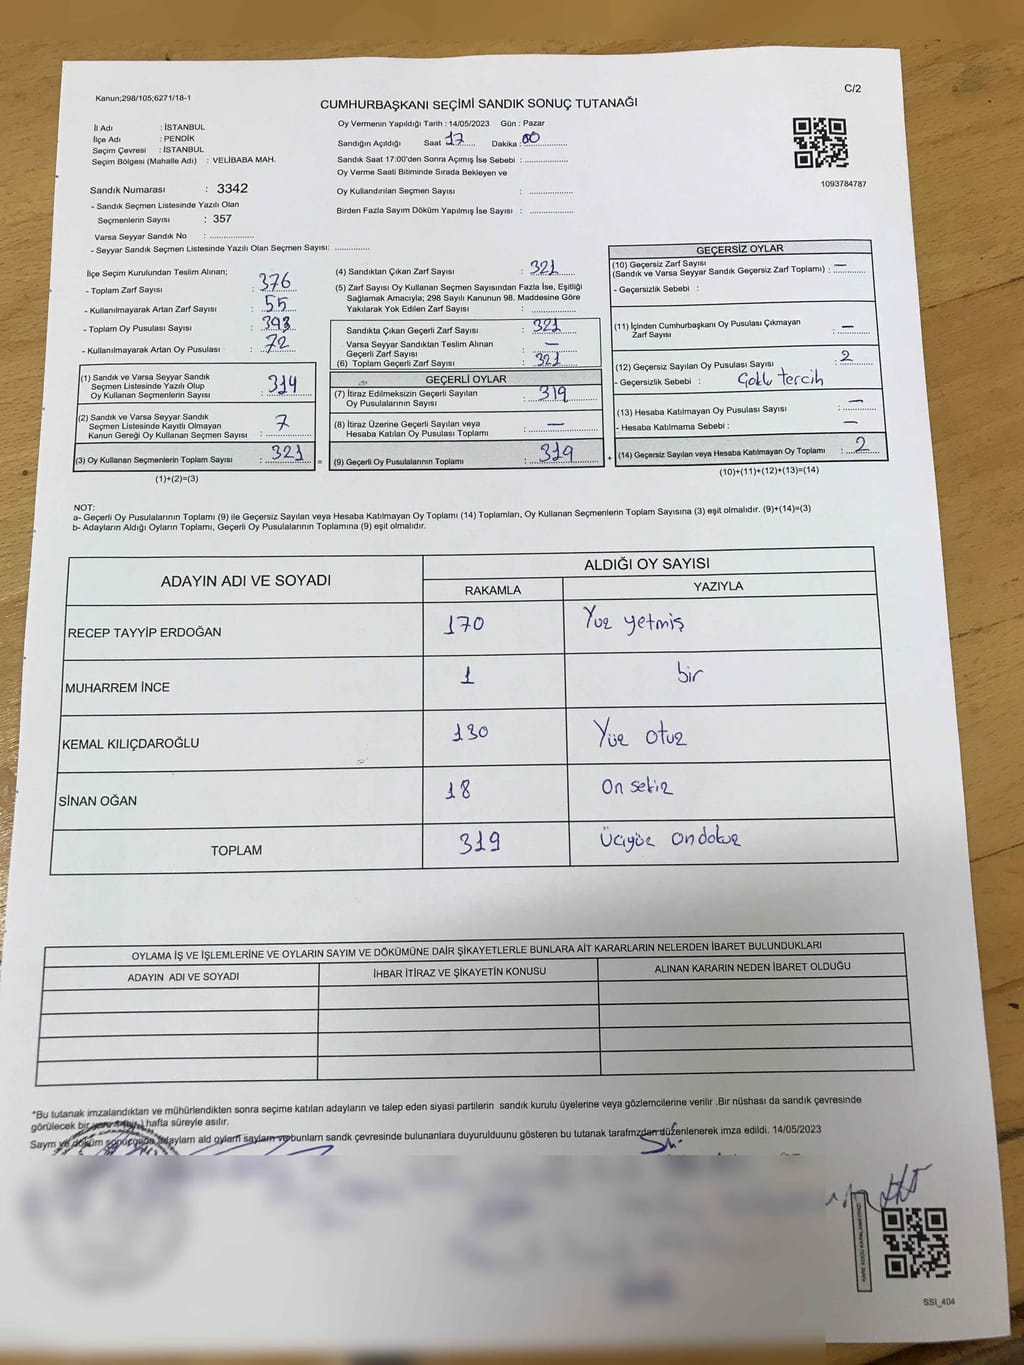 Kanun;298/105;6271/18-1
C/2
CUMHURBAŞKANI SEÇİMİ SANDIK SONUÇ TUTANAĞI
İl Adı : İSTANBUL
İlçe Adı : PENDİK
Seçim Çevresi : İSTANBUL
Seçim Bölgesi (Mahalle Adı) : VELİBABA MAH.
Sandık Numarası : 3342
- Sandık Seçmen Listesinde Yazılı Olan
Seçmenlerin Sayısı : 357
Varsa Seyyar Sandık No : ............
- Seyyar Sandık Seçmen Listesinde Yazılı Olan Seçmen Sayısı: ............
Oy Vermenin Yapıldığı Tarih : 14/05/2023 Gün : Pazar
Sandığın Açıldığı Saat 17 Dakika : 00
Sandık Saat 17:00'den Sonra Açımış İse Sebebi : ............
Oy Verme Saati Bitiminde Sırada Bekleyen ve
Oy Kullandırılan Seçmen Sayısı : ............
Birden Fazla Sayım Döküm Yapılmış İse Sayısı : ............
1093784787
İlçe Seçim Kurulundan Teslim Alınan;
- Toplam Zarf Sayısı : 376
- Kullanılmayarak Artan Zarf Sayısı : 55
- Toplam Oy Pusulası Sayısı : 393
- Kullanılmayarak Artan Oy Pusulası : 72
(1) Sandık ve Varsa Seyyar Sandık
Seçmen Listesinde Yazılı Olup
Oy Kullanan Seçmenlerin Sayısı : 314
(2) Sandık ve Varsa Seyyar Sandık
Seçmen Listesinde Kayıtlı Olmayan
Kanun Gereği Oy Kullanan Seçmen Sayısı : 7
(3) Oy Kullanan Seçmenlerin Toplam Sayısı : 321 =
(1)+(2)=(3)
(4) Sandıktan Çıkan Zarf Sayısı : 321
(5) Zarf Sayısı Oy Kullanan Seçmen Sayısından Fazla İse, Eşitliği
Sağlamak Amacıyla; 298 Sayılı Kanunun 98. Maddesine Göre
Yakılarak Yok Edilen Zarf Sayısı : ............
Sandıkta Çıkan Geçerli Zarf Sayısı : 321
Varsa Seyyar Sandıktan Teslim Alınan
Geçerli Zarf Sayısı : —
(6) Toplam Geçerli Zarf Sayısı : 321
GEÇERLİ OYLAR
(7) İtiraz Edilmeksizin Geçerli Sayılan
Oy Pusulalarının Sayısı : 319
(8) İtiraz Üzerine Geçerli Sayılan veya
Hesaba Katılan Oy Pusulası Toplamı : —
(9) Geçerli Oy Pusulalarının Toplamı : 319 +
GEÇERSİZ OYLAR
(10) Geçersiz Zarf Sayısı
(Sandık ve Varsa Seyyar Sandık Geçersiz Zarf Toplamı) : —
- Geçersizlik Sebebi :
(11) İçinden Cumhurbaşkanı Oy Pusulası Çıkmayan
Zarf Sayısı : —
(12) Geçersiz Sayılan Oy Pusulası Sayısı : 2
- Geçersizlik Sebebi : Çoklu tercih
(13) Hesaba Katılmayan Oy Pusulası Sayısı : —
- Hesaba Katılmama Sebebi : —
(14) Geçersiz Sayılan veya Hesaba Katılmayan Oy Toplamı : 2
(10)+(11)+(12)+(13)=(14)
NOT:
a- Geçerli Oy Pusulalarının Toplamı (9) ile Geçersiz Sayılan veya Hesaba Katılmayan Oy Toplamı (14) Toplamları, Oy Kullanan Seçmenlerin Toplam Sayısına (3) eşit olmalıdır. (9)+(14)=(3)
b- Adayların Aldığı Oyların Toplamı, Geçerli Oy Pusulalarının Toplamına (9) eşit olmalıdır.
ADAYIN ADI VE SOYADI ALDIĞI OY SAYISI
RAKAMLA YAZIYLA
RECEP TAYYİP ERDOĞAN 170 Yüz yetmiş
MUHARREM İNCE 1 bir
KEMAL KILIÇDAROĞLU 130 Yüz otuz
SİNAN OĞAN 18 On sekiz
TOPLAM 319 Üçyüz ondokuz
OYLAMA İŞ VE İŞLEMLERİNE VE OYLARIN SAYIM VE DÖKÜMÜNE DAİR ŞİKAYETLERLE BUNLARA AİT KARARLARIN NELERDEN İBARET BULUNDUKLARI
ADAYIN ADI VE SOYADI İHBAR İTİRAZ VE ŞİKAYETİN KONUSU ALINAN KARARIN NEDEN İBARET OLDUĞU
*Bu tutanak imzalandıktan ve mühürlendikten sonra seçime katılan adayların ve talep eden siyasi partilerin sandık kurulu üyelerine veya gözlemcilerine verilir .Bir nüshası da sandık çevresinde
görülecek bir hafta süreyle asılır.
Sayım ve döküm adayların ald oyların sayların ve bunların sandk çevresinde bulunanlara duyurulduunu gösteren bu tutanak tarafmzdan düzenlenerek imza edildi. 14/05/2023
SSI_404